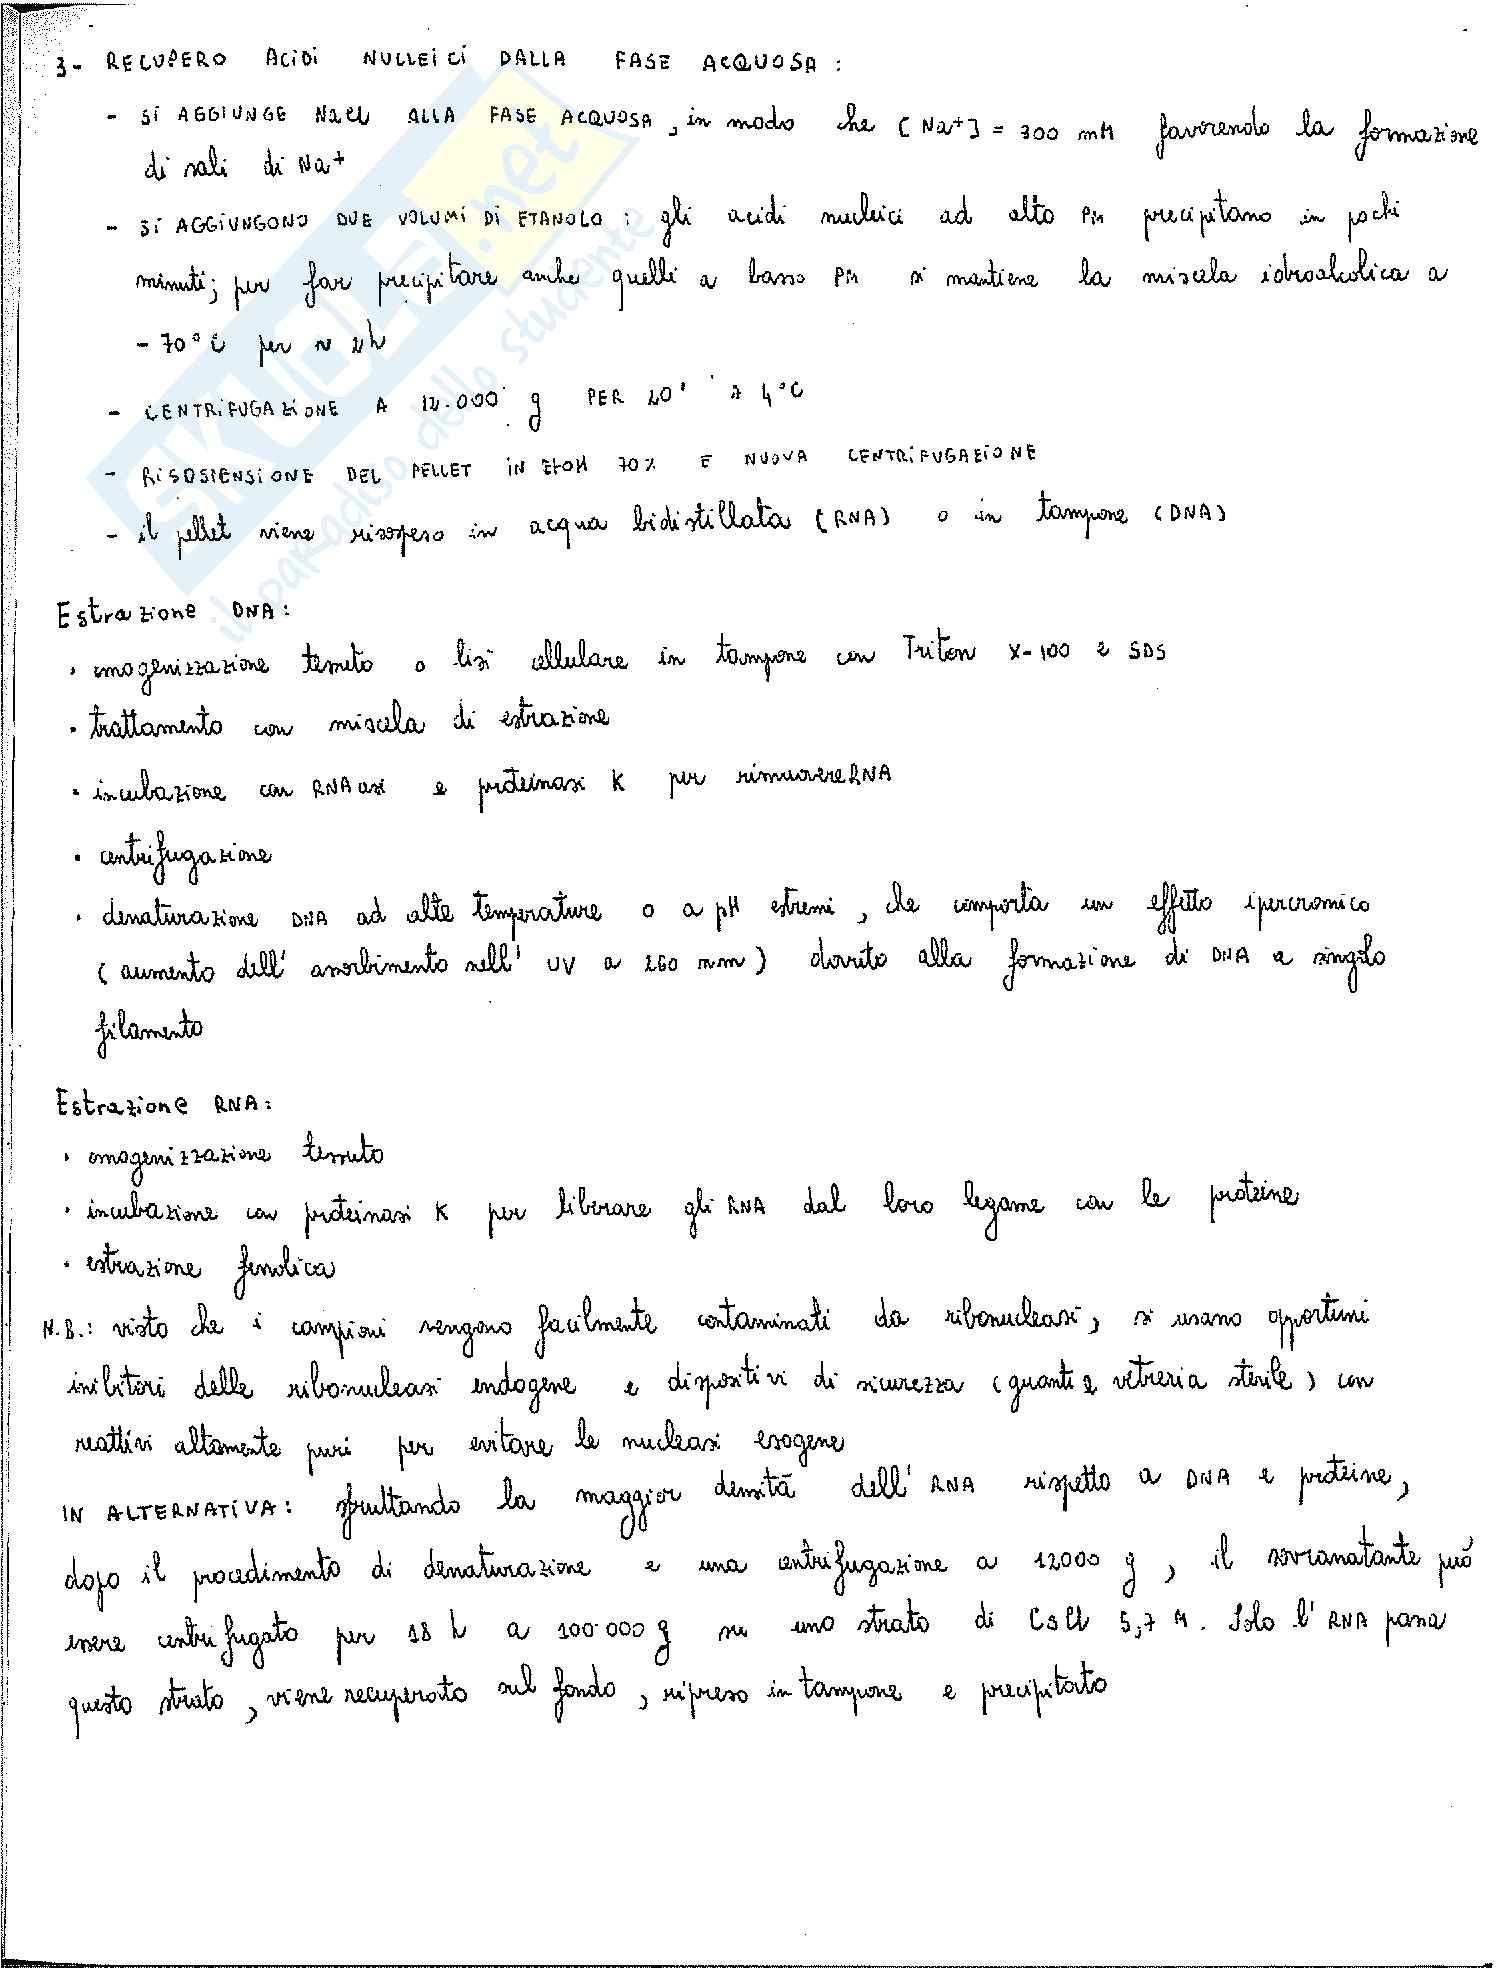 3- RECUPERO ACIDI NUCLEICI DALLA FASE ACQUOSA:
- SI AGGIUNGE NaCl ALLA FASE ACQUOSA, in modo che [Na+] = 300 mM favorendo la formazione
di sali di Na+
- SI AGGIUNGONO DUE VOLUMI DI ETANOLO: gli acidi nucleici ad alto PM precipitano in pochi
minuti; per far precipitare anche quelli a basso PM si mantiene la miscela idroalcolica a
-70°C per ~ 2h
- CENTRIFUGAZIONE A 12.000 g PER 20' A 4°C
- RISOSPENSIONE DEL PELLET IN EtOH 70% E NUOVA CENTRIFUGAZIONE
- il pellet viene risospeso in acqua bidistillata (RNA) o in tampone (DNA)
Estrazione DNA:
• omogenizzazione tessuto o lisi cellulare in tampone con Triton X-100 e SDS
• trattamento con miscela di estrazione
• incubazione con RNAasi e proteinasi K per rimuovere RNA
• centrifugazione
• denaturazione DNA ad alte temperature o a pH estremi, che comporta un effetto ipercromico
(aumento dell'assorbimento nell'UV a 260 nm) dovuto alla formazione di DNA a singolo
filamento
Estrazione RNA:
• omogenizzazione tessuto
• incubazione con proteinasi K per liberare gli RNA dal loro legame con le proteine
• estrazione fenolica
N.B.: visto che i campioni vengono facilmente contaminati da ribonucleasi, si usano opportuni
inibitori delle ribonucleasi endogene e dispositivi di sicurezza (guanti e vetreria sterile) con
reattivi altamente puri per evitare le nucleasi esogene
IN ALTERNATIVA: sfruttando la maggior densità dell'RNA rispetto a DNA e proteine,
dopo il procedimento di denaturazione e una centrifugazione a 12000 g, il sovranatante può
essere centrifugato per 18 h a 100.000 g su uno strato di CsCl 5,7 M. Solo l'RNA passa
questo strato, viene recuperato sul fondo, ripreso in tampone e precipitato
SKUOLA.net
il paradiso dello studente